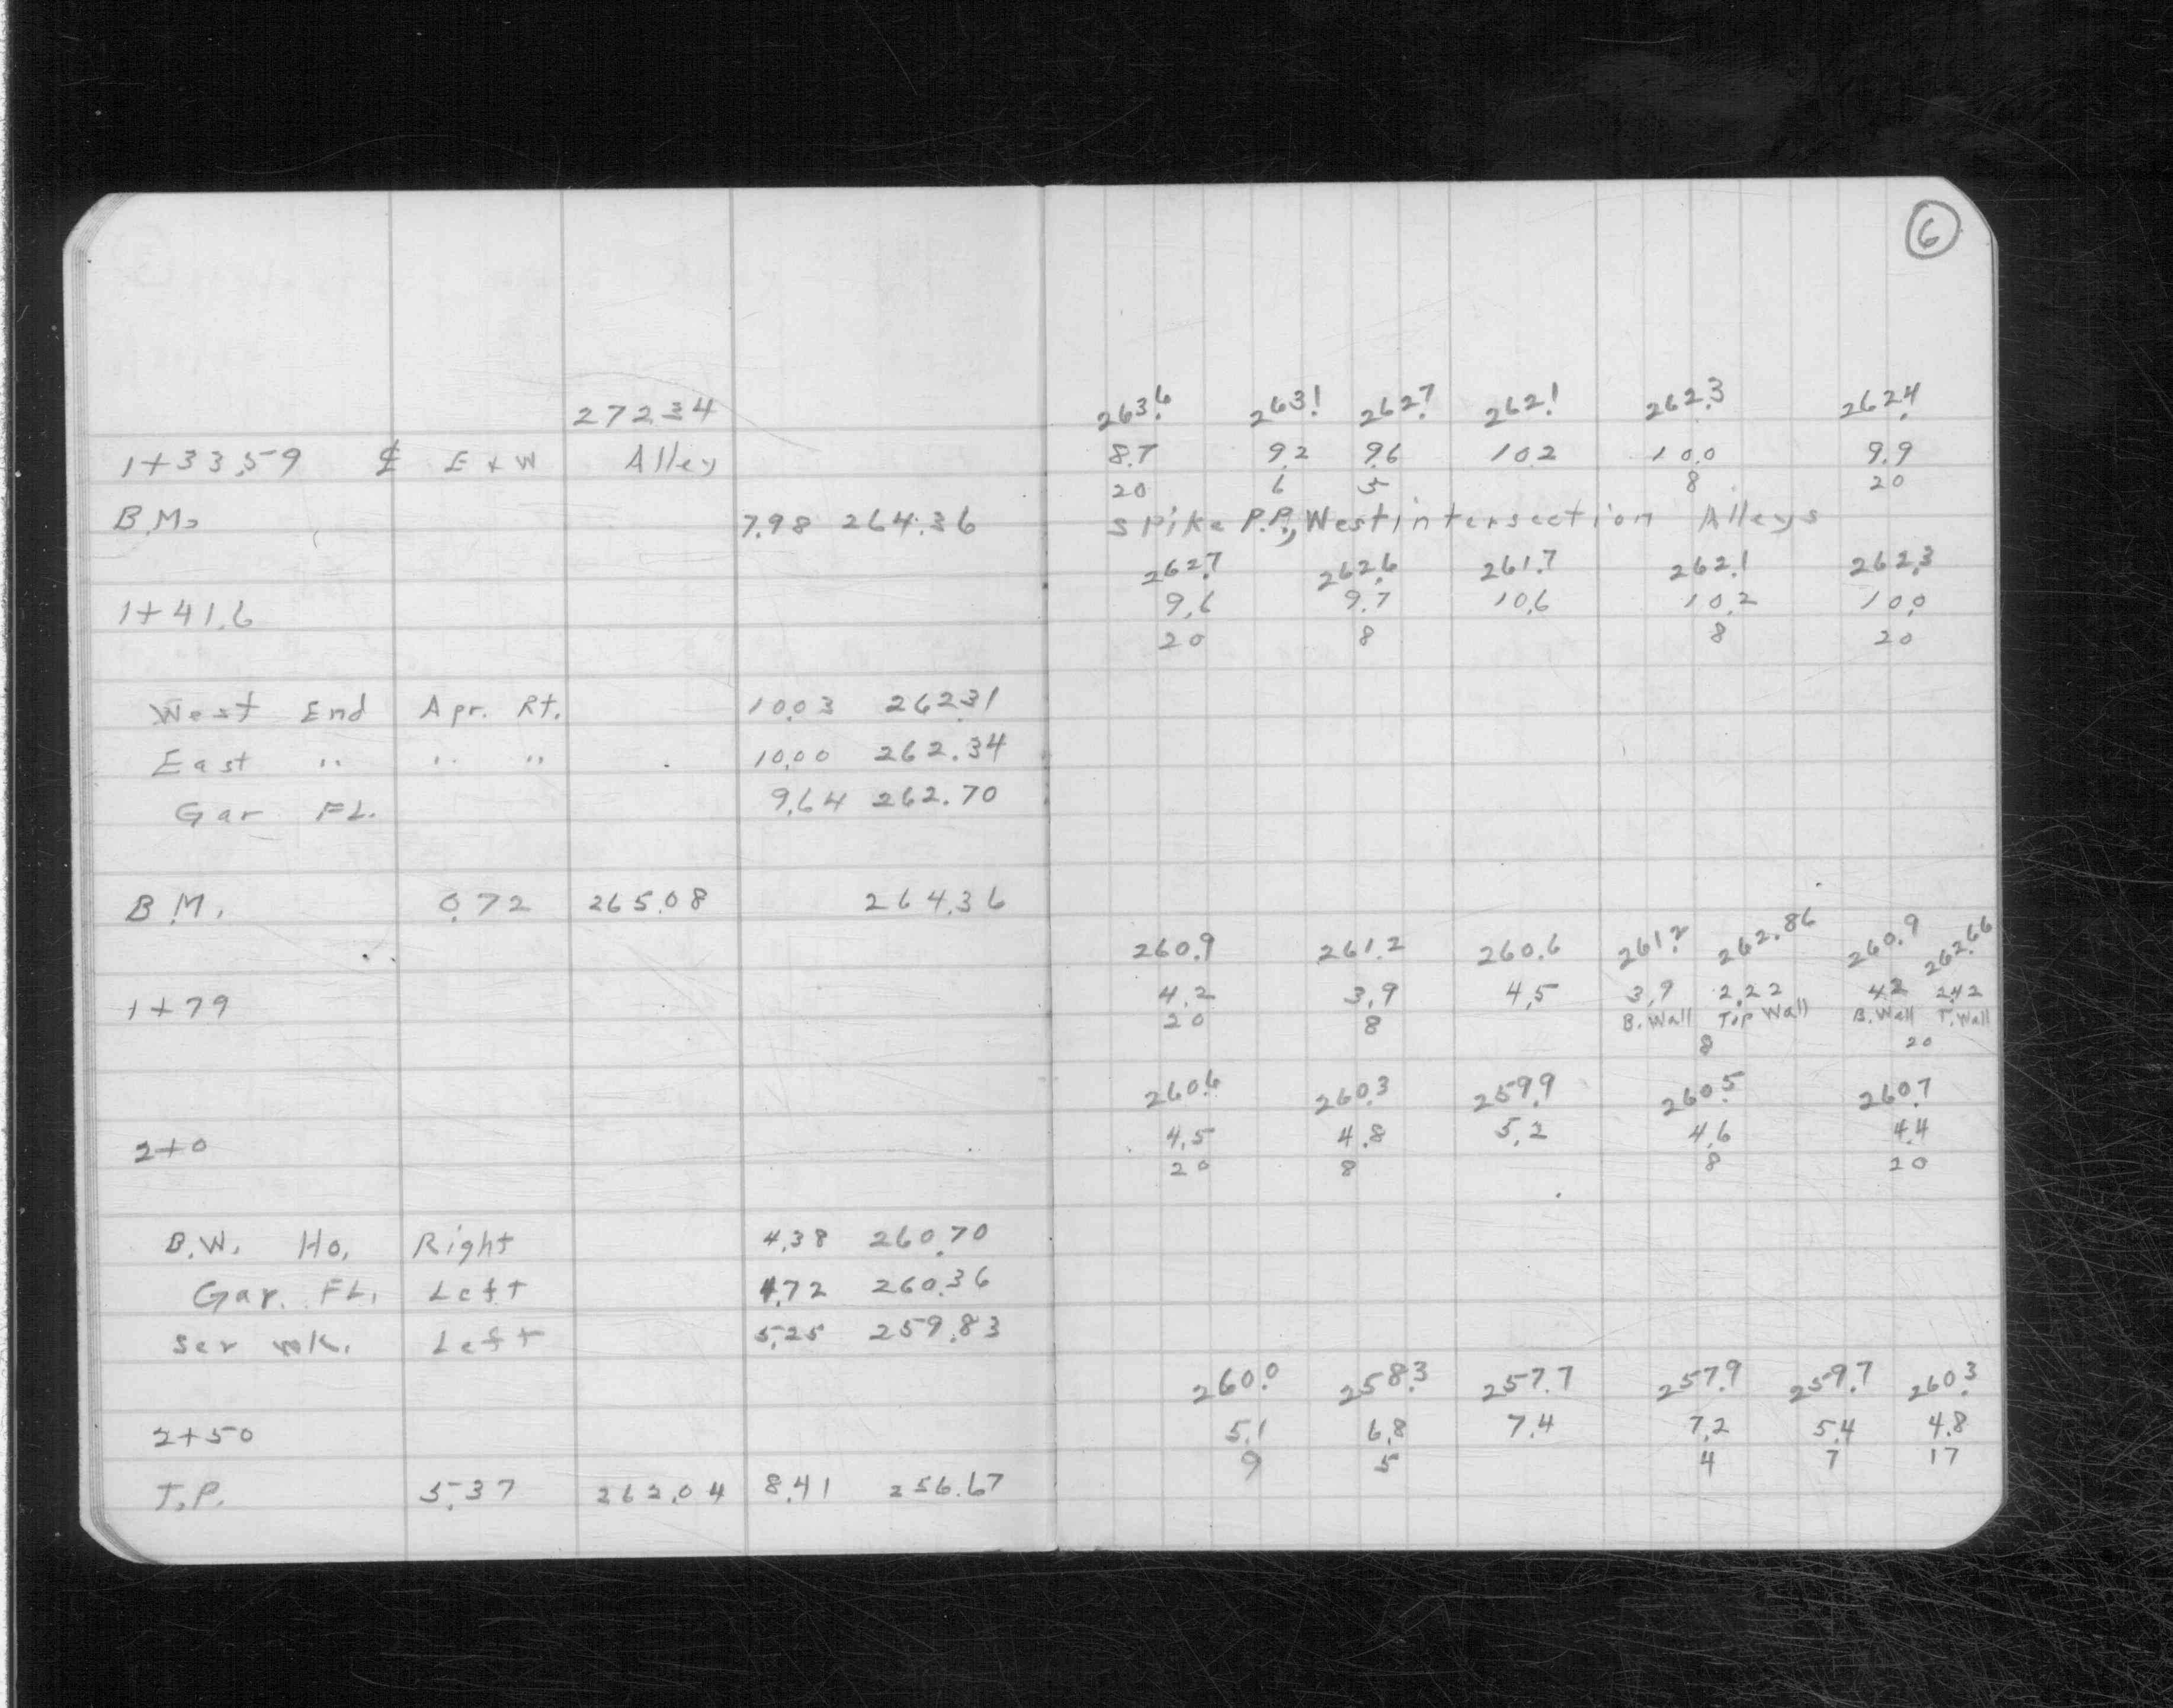 6
27234 263.6 263.1 262.7 262.1 262.3 262.4
1+33.59 ₵ E+W Alley 8.7 9.2 9.6 10.2 10.0 9.9
20 6 5 8 20
B.M. 7.98 264.36 Spike P.P., West intersection Alleys
262.7 262.6 261.7 262.1 262.3
1+41.6 9.6 9.7 10.6 10.2 10.0
20 8 8 20
West End Apr. Rt. 10.03 262.31
East " " " 10.00 262.34
Gar FL. 9.64 262.70
B.M. 0.72 265.08 264.36
260.9 261.2 260.6 261.2 262.86 260.9 262.66
1+79 4.2 3.9 4.5 3.9 2.22 4.2 2.42
20 8 B. Wall Top Wall B. Wall T. Wall
8 20
260.6 260.3 259.9 260.5 260.7
2+0 4.5 4.8 5.2 4.6 4.4
20 8 8 20
B.W. Ho. Right 4.38 260.70
Gar. FL. Left 4.72 260.36
Ser wk. Left 5.25 259.83
260.0 258.3 257.7 257.9 259.7 260.3
2+50 5.1 6.8 7.4 7.2 5.4 4.8
9 5 4 7 17
T.P. 5.37 262.04 8.41 256.67